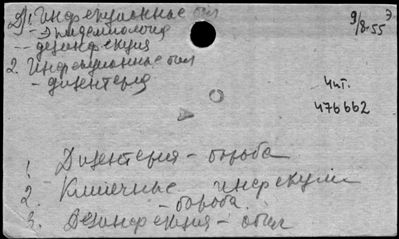 1. Инфекционные бол
- эпидемиология
- дезинфекция
2. Инфекционные бол
- дизентерия
9/8-55
Э
Чит.
476662
1. Дизентерия - борьба
2. Кишечные инфекции
- борьба
3. Дезинфекция -